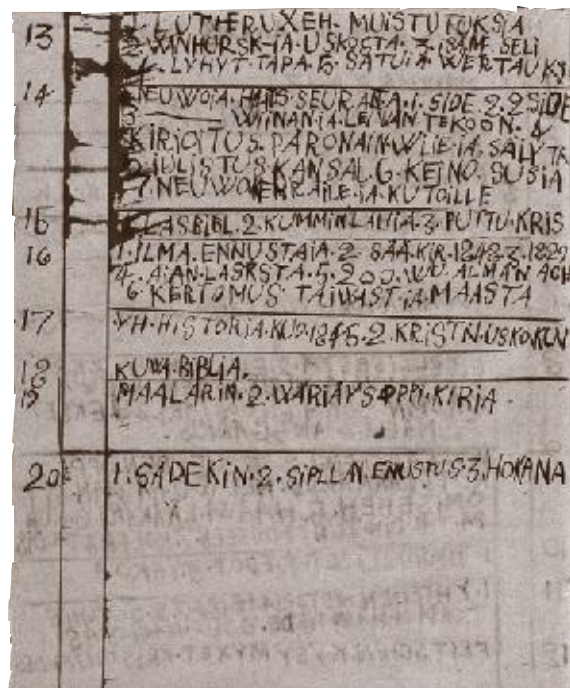 13 1. LUTHERUXEH. MUISTUTUKSIA
2. WANHURSK-IA USKOSTA. 3. ISÄM. SELI
4. LYHYT TAPA. 5. SATUI A WERTAUKS
14 1. NEUWOIA. HAIS SEURATA. 1. SIDE 2. 2 SIDE
3 WIINAN IA LEIVÄN TEKOON. 4
KIRIOITUS. PARONAIN WLIE IA. SÄILYTÄ
JULISTUS KANSAL. 6. KEINO. SUSIA
7 NEUWO IA KUTOILLE
15 1. LAS. BIBL. 2. KUMMIN LAHIA. 3. PUTTU. KRIS
16 1. ILMA. ENNUSTAIA. 2. SAA. KIR. 1848. 3. 1829
4. AIAN. LASKSTA. 5. 200. WU. ALMAN ACH
6 KERTOMUS TAIWAST IA MAASTA
17 YH. HISTORIA. KUO. 1845. 2. KRISTN. USKOKUN
18 KUWA. BIBLIA.
19 MAALARIN. 2. WÄRIÄYS OPPI. KIRIA.
20 1. SADEKIN. 2. SIPLLAN. ENUSTUS. 3. HOKANA